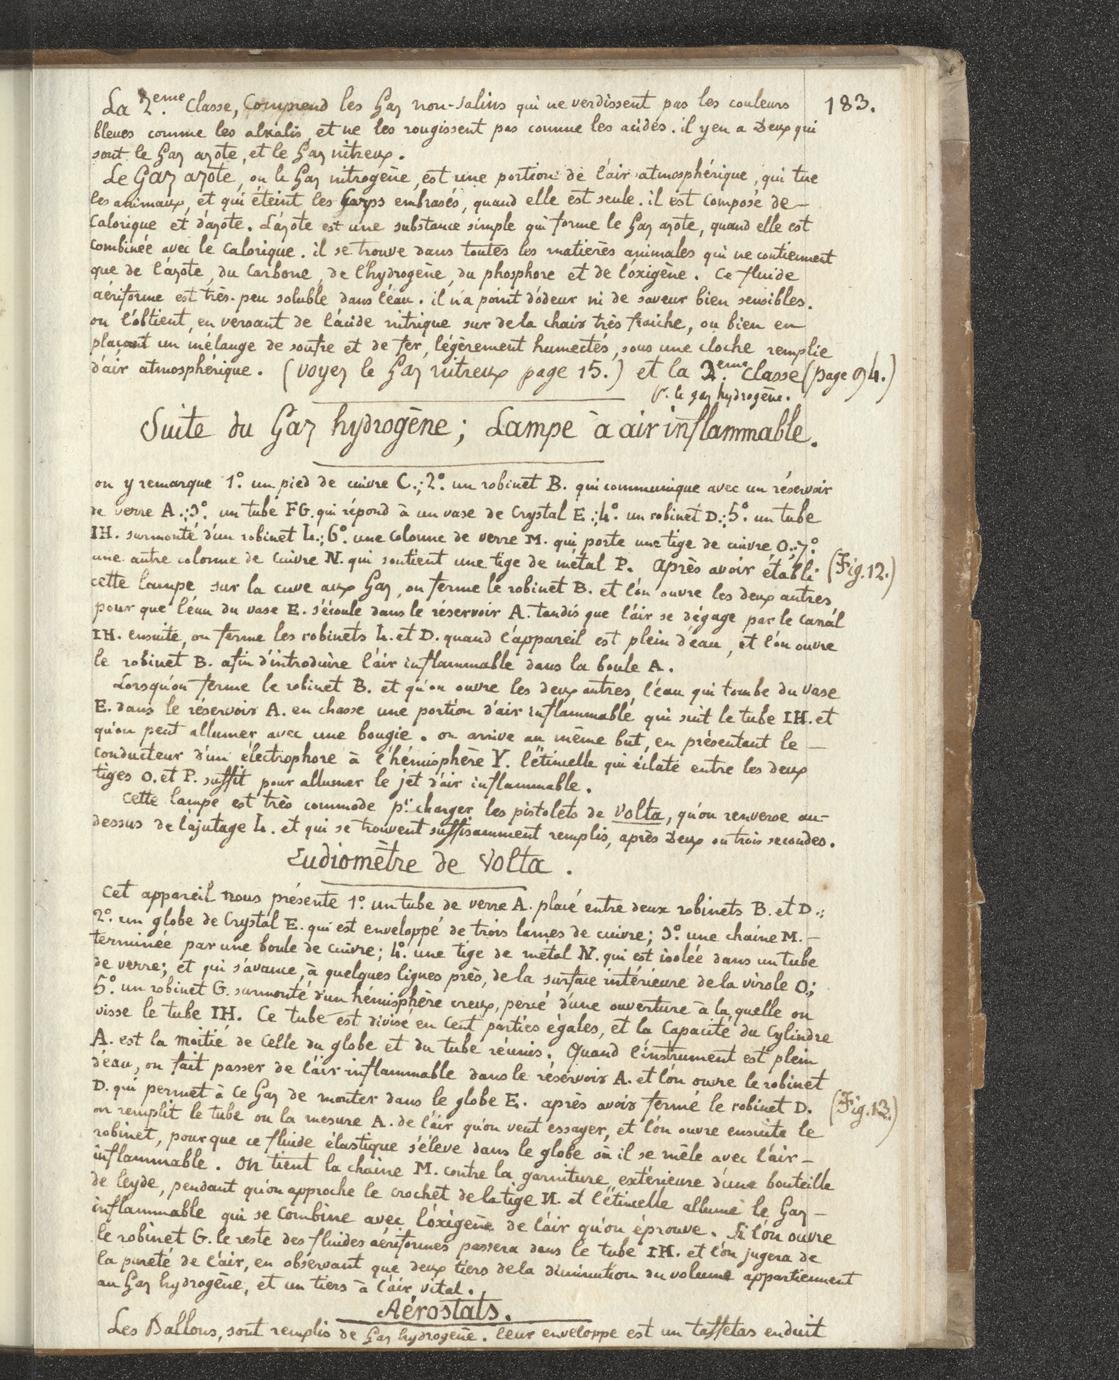 183.
La 2.eme Classe, Comprend les Gaz non-salins qui ne verdissent pas les couleurs
bleues comme les alkalis, et ne les rougissent pas comme les acides. il y en a Deux qui
sont le Gaz azote, et le Gaz nitreux.
Le Gaz azote, ou le Gaz nitrogène, est une portion de l'air atmosphérique, qui tue
les animaux, et qui éteint les embrasés, quand elle est seule. il est composé de —
Calorique et d'azote. L'azote est une substance simple qui forme le Gaz azote, quand elle est
combinée avec le Calorique. il se trouve dans toutes les matières animales qui ne contiennent
que de l'azote, du Carbone, de l'hydrogène, du phosphore et de l'oxigène. Ce fluide
aériforme est très-peu soluble dans l'eau. il n'a point d'odeur ni de saveur bien sensibles.
on l'obtient, en versant de l'acide nitrique sur de la chair très fraiche, ou bien en —
plaçant un mélange de soufre et de fer, légèrement humectés, sous une cloche remplie
d'air atmosphérique. (voyez le Gaz nitreux page 15.) et la 2.eme Classe (page 94.)
V. le gaz hydrogène.
Suite du Gaz hydrogène; Lampe à air inflammable.
on y remarque 1.° un pied de cuivre C.; 2.° un robinet B. qui communique avec un réservoir
de verre A.; 3.° un tube FG. qui répond à un vase de Crystal E.; 4.° un robinet D.; 5.° un tube
IH. surmonté d'un robinet L.; 6.° une colonne de verre M. qui porte une tige de cuivre O.; 7.°
une autre colonne de Cuivre N. qui soutient une tige de métal P. Après avoir établi (Fig. 12.)
cette lampe sur la cuve aux Gaz, on ferme le robinet B. et l'on ouvre les deux autres,
pour que l'eau du vase E. s'écoule dans le réservoir A. tandis que l'air se dégage par le canal
IH. ensuite, on ferme les robinets L. et D. quand l'appareil est plein d'eau, et l'on ouvre
le robinet B. afin d'introduire l'air inflammable dans la boule A.
Lorsqu'on ferme le robinet B. et qu'on ouvre les deux autres, l'eau qui tombe du vase
E. dans le réservoir A. en chasse une portion d'air inflammable qui suit le tube IH. et
qu'on peut allumer avec une bougie. on arrive au même but, en présentant le —
conducteur d'un électrophore à l'hémisphère Y. l'étincelle qui éclate entre les deux
tiges O. et P. suffit pour allumer le jet d'air inflammable.
Cette lampe est très commode pr. charger les pistolets de Volta, qu'on renverse au-
dessus de l'ajutage L. et qui se trouvent suffisamment remplis, après Deux ou trois secondes.
Eudiomètre de Volta.
Cet appareil nous présente 1.° un tube de verre A. placé entre deux robinets B. et D.;
2.° un globe de Crystal E. qui est enveloppé de trois lames de cuivre; 3.° une chaine M. —
terminée par une boule de cuivre; 4.° une tige de métal N. qui est isolée dans un tube
de verre; et qui s'avance, à quelques lignes près, de la surface intérieure de la virole O.;
5.° un robinet G. surmonté d'un hémisphère creux, percé d'une ouverture à la quelle on
visse le tube IH. Ce tube est divisé en Cent parties égales, et la Capacité du Cylindre
A. est la moitié de Celle du globe et du tube réunis. Quand l'instrument est plein
d'eau, on fait passer de l'air inflammable dans le réservoir A. et l'on ouvre le robinet
D. qui permet à ce Gaz de monter dans le globe E. après avoir fermé le robinet D. (Fig. 13.)
on remplit le tube ou la mesure A. de l'air qu'on veut essayer, et l'on ouvre ensuite le
robinet, pour que ce fluide élastique s'élève dans le globe où il se mêle avec l'air —
inflammable. On tient la chaine M. contre la garniture extérieure d'une bouteille
de leyde, pendant qu'on approche le crochet de la tige N. et l'étincelle allume le Gaz —
inflammable qui se Combine avec l'oxigène de l'air qu'on éprouve. Si l'on ouvre
le robinet G. le reste des fluides aériformes passera dans le tube IH. et l'on jugera de
la pureté de l'air, en observant que deux tiers de la diminution du volume appartiennent
au Gaz hydrogène, et un tiers à l'air vital.
Aérostats.
Les Ballons, sont remplis de Gaz hydrogène. leur enveloppe est un taffetas enduit